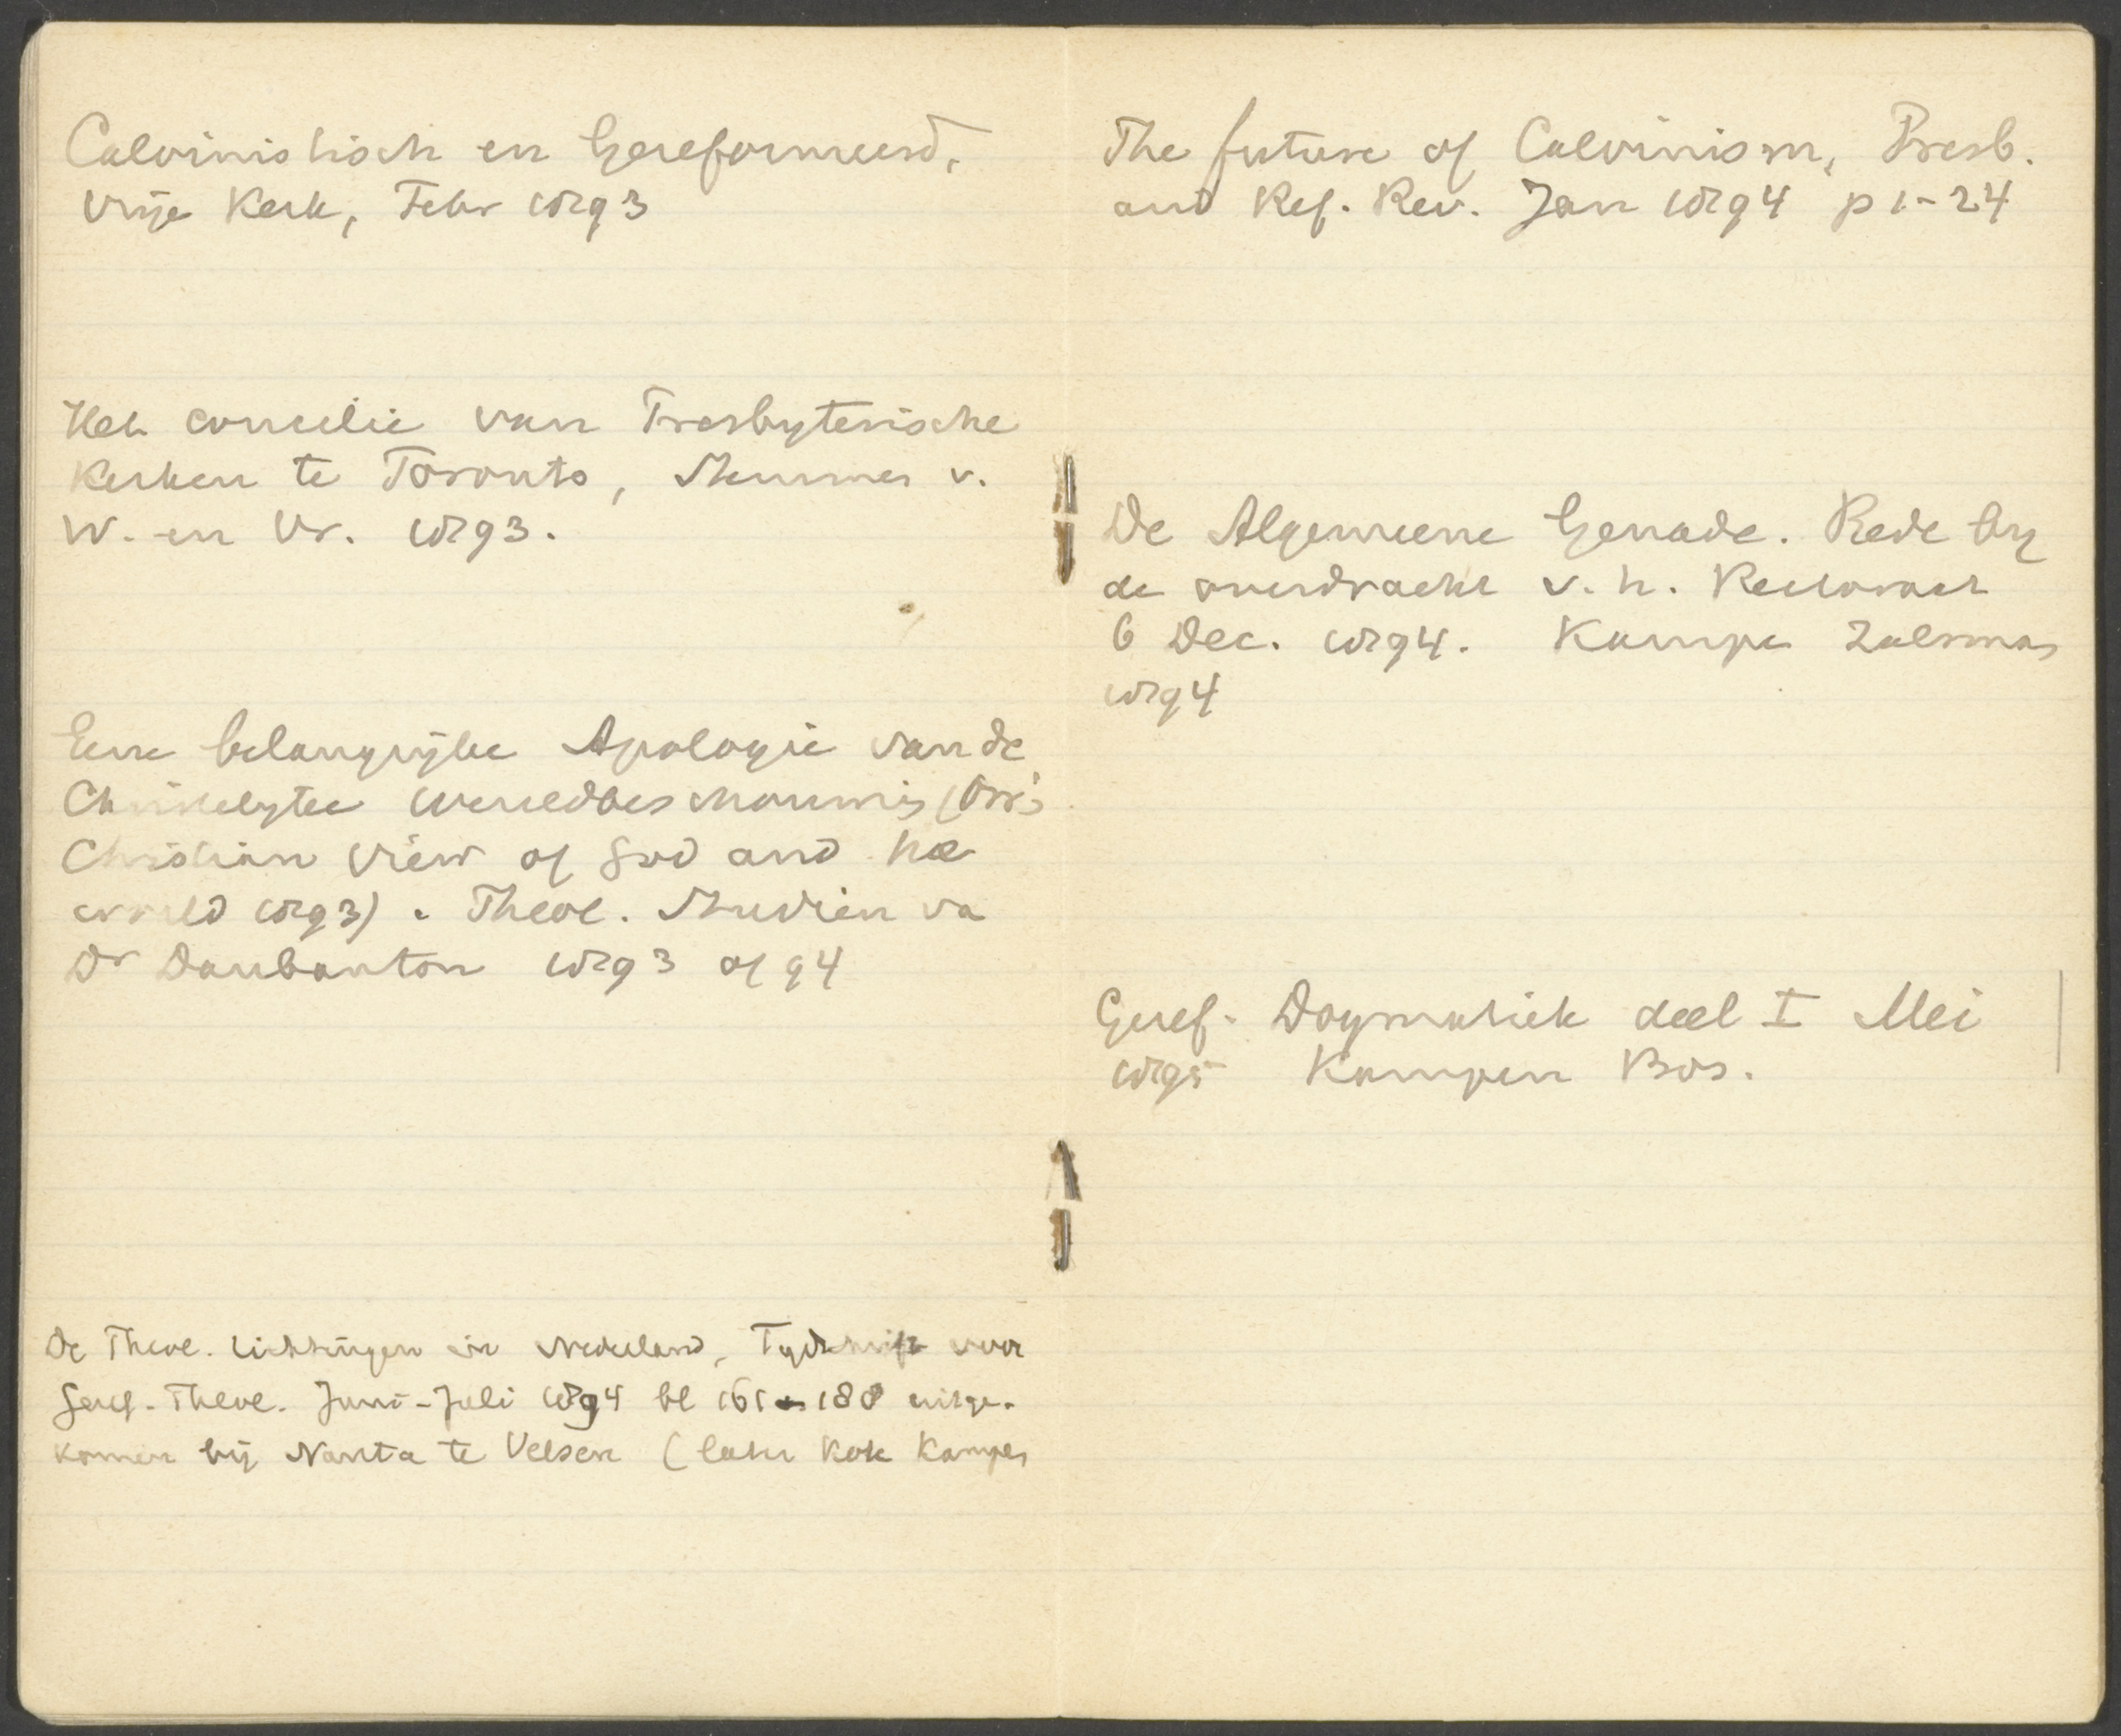 Calvinistisch en Gereformeerd,
Vrije Kerk, Febr 1893
Het concilie van Presbyterische
Kerken te Toronto, Stemmen v.
W. en Vr. 1893.
Eene belangrijke Apologie van de
Christelijke Wereldbeschouwing (Orr's
Christian View of God and the
world 1893). Theol. Studien va
Dr Daubanton 1893 of 94
De Theol. richtingen in Nederland, Tijdschrift voor
Geref. Theol. Juni-Juli 1894 bl 161-188 uitge-
komen bij Nanta te Velsen (later Kok Kampen
The future of Calvinism, Presb.
and Ref. Rev. Jan 1894 p 1-24
De Algemeene Genade. Rede bij
de overdracht v. h. Rectoraat
6 Dec. 1894. Kampen Zalsman
1894
Geref. Dogmatiek deel I Mei
1895 Kampen Bos.